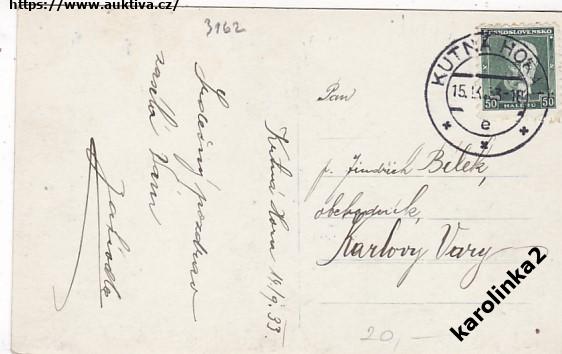 https://www.auktiva.cz/
3162
Srdečný pozdrav
zasílá Vám
Kutná Hora 14/9.33.
KUTNÁ HORA
15.IX.33-18
e
ČESKOSLOVENSKO
50 HALÉŘŮ 50
Pan
p. Jindřich Belek,
obchodník,
Karlovy Vary
20,-
karolinka2